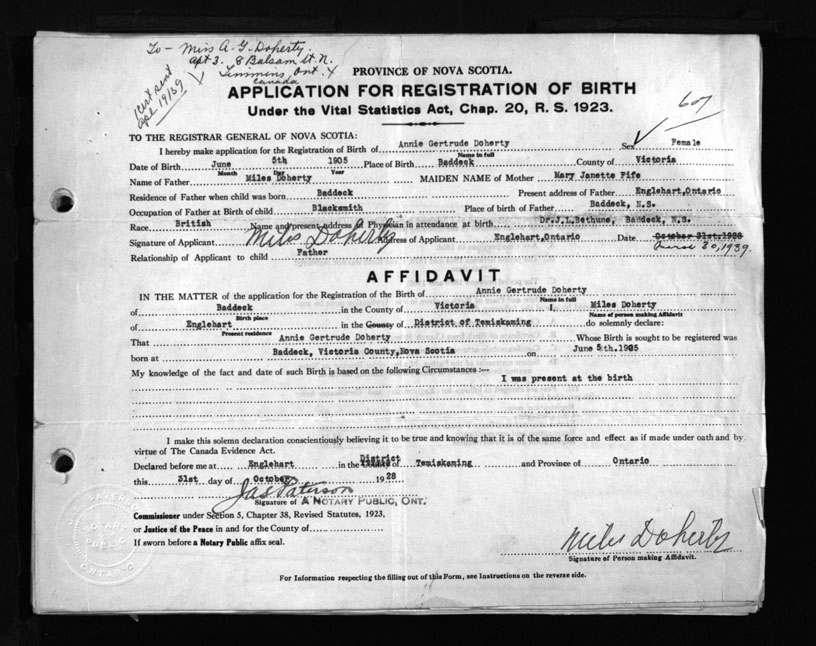 To - Miss A. G. Doherty.
apt 3. 8 Balsam St. N.
Timmins, Ont.
Canada
cert sent
apl 19/39
607
PROVINCE OF NOVA SCOTIA.
APPLICATION FOR REGISTRATION OF BIRTH
Under the Vital Statistics Act, Chap. 20, R. S. 1923.
TO THE REGISTRAR GENERAL OF NOVA SCOTIA:
I hereby make application for the Registration of Birth of Annie Gertrude Doherty Sex Female
Name in full
Date of Birth June 5th 1905 Place of Birth Baddeck County of Victoria
Month Day Year
Name of Father Miles Doherty MAIDEN NAME of Mother Mary Janette Fife
Residence of Father when child was born Baddeck Present address of Father Englehart, Ontario
Occupation of Father at Birth of child Blacksmith Place of birth of Father Baddeck, N.S.
Race British Name and present address of Physician in attendance at birth Dr.J.L.Bethune, Baddeck, N.S.
Signature of Applicant Miles Doherty Address of Applicant Englehart, Ontario Date October 31st.
30, 1939.
Relationship of Applicant to child Father
AFFIDAVIT
IN THE MATTER of the application for the Registration of the Birth of Annie Gertrude Doherty
Name in full
of Baddeck in the County of Victoria I, Miles Doherty
Birth place Name of person making Affidavit
of Englehart in the County of District of Temiskaming do solemnly declare:
Present residence
That Annie Gertrude Doherty Whose Birth is sought to be registered was
born at Baddeck, Victoria County, Nova Scotia on June 5th.1905
My knowledge of the fact and date of such Birth is based on the following Circumstances :--
I was present at the birth
I make this solemn declaration conscientiously believing it to be true and knowing that it is of the same force and effect as if made under oath and by
virtue of The Canada Evidence Act.
Declared before me at Englehart in the District of Temiskaming and Province of Ontario
this 31st day of October 1928
Jas Paterson
Signature of A NOTARY PUBLIC, ONT.
Commissioner under Section 5, Chapter 38, Revised Statutes, 1923,
or Justice of the Peace in and for the County of
If sworn before a Notary Public affix seal.
Miles Doherty
Signature of Person making Affidavit.
NOTARY
PUBLIC
ONTARIO
For Information respecting the filling out of this Form, see Instructions on the reverse side.